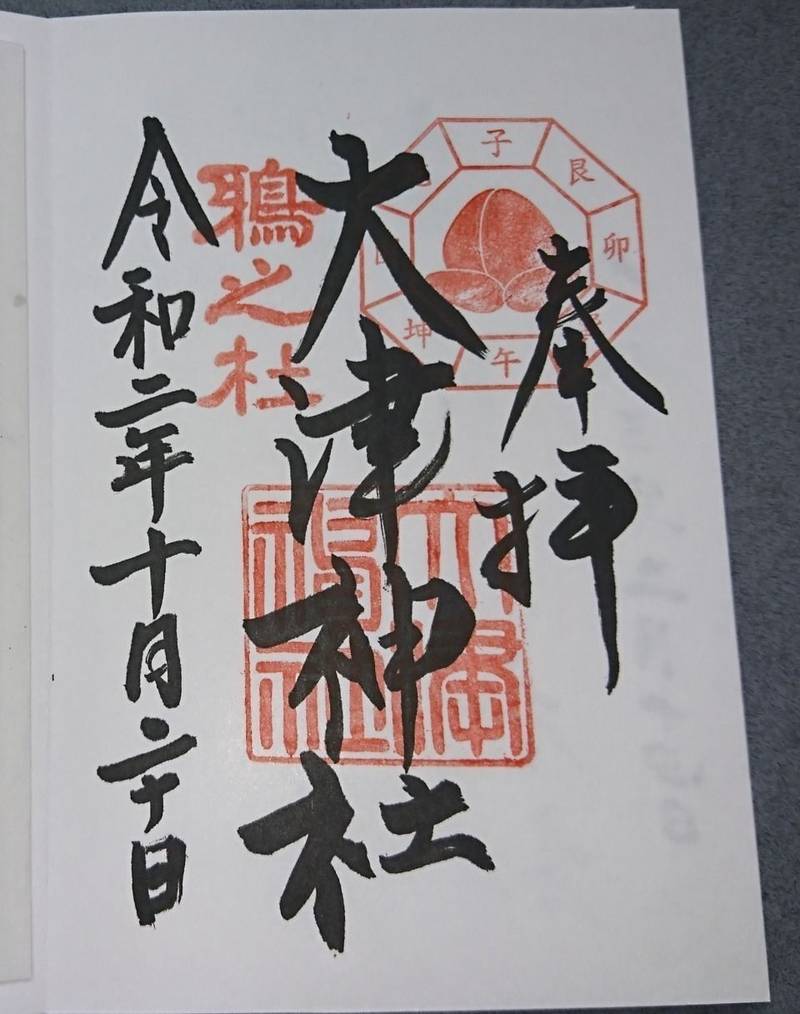 奉拝
子
艮
卯
午
坤
大津神社
鴉之杜
令和二年十月二十日